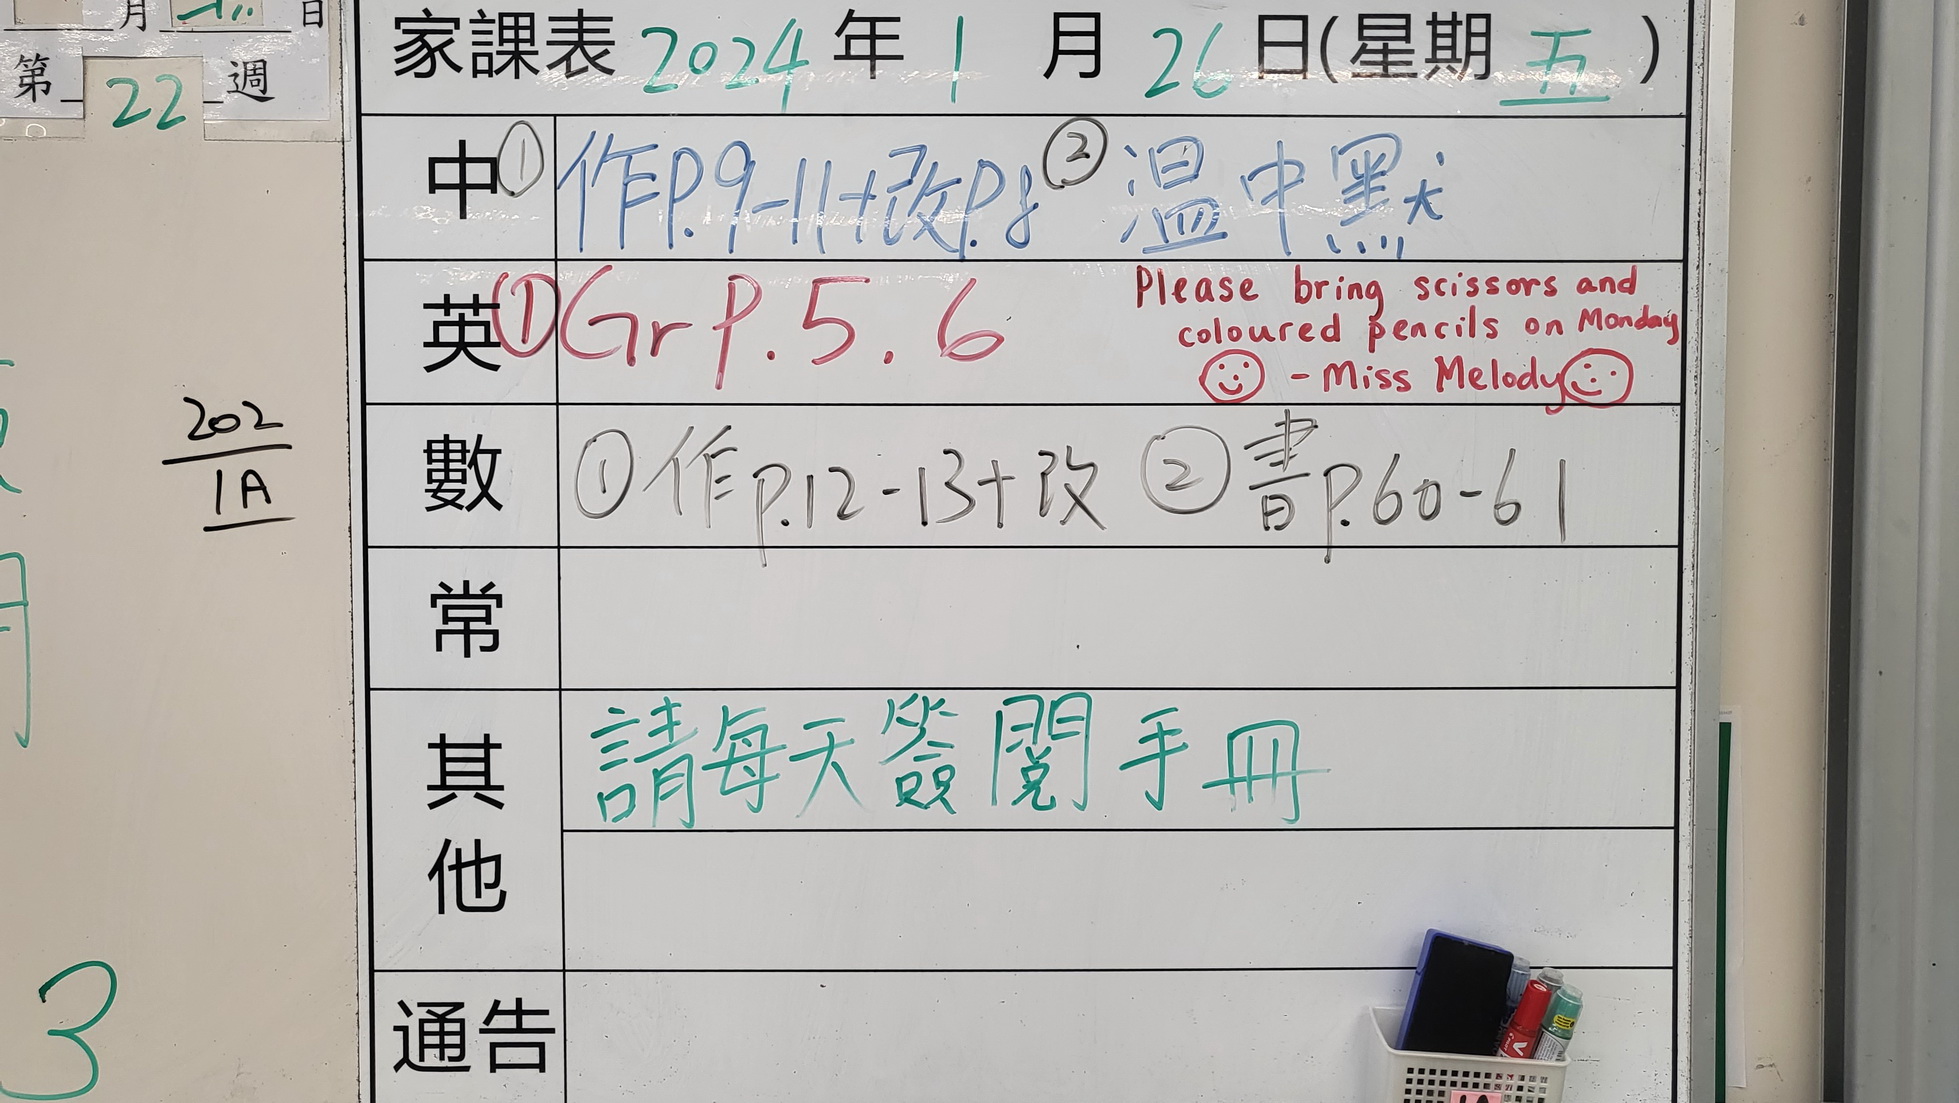 月 日
第 22 週
家課表 2024 年 1 月 26 日(星期 五 )
中 ① 作P.9-11+改P.8 ② 温中默
英 ① Gr P.5.6
Please bring scissors and
coloured pencils on Monday
- Miss Melody
數 ① 作P.12-13+改 ② 書P.60-61
202
1A
常
其他 請每天簽閱手冊
通告
3